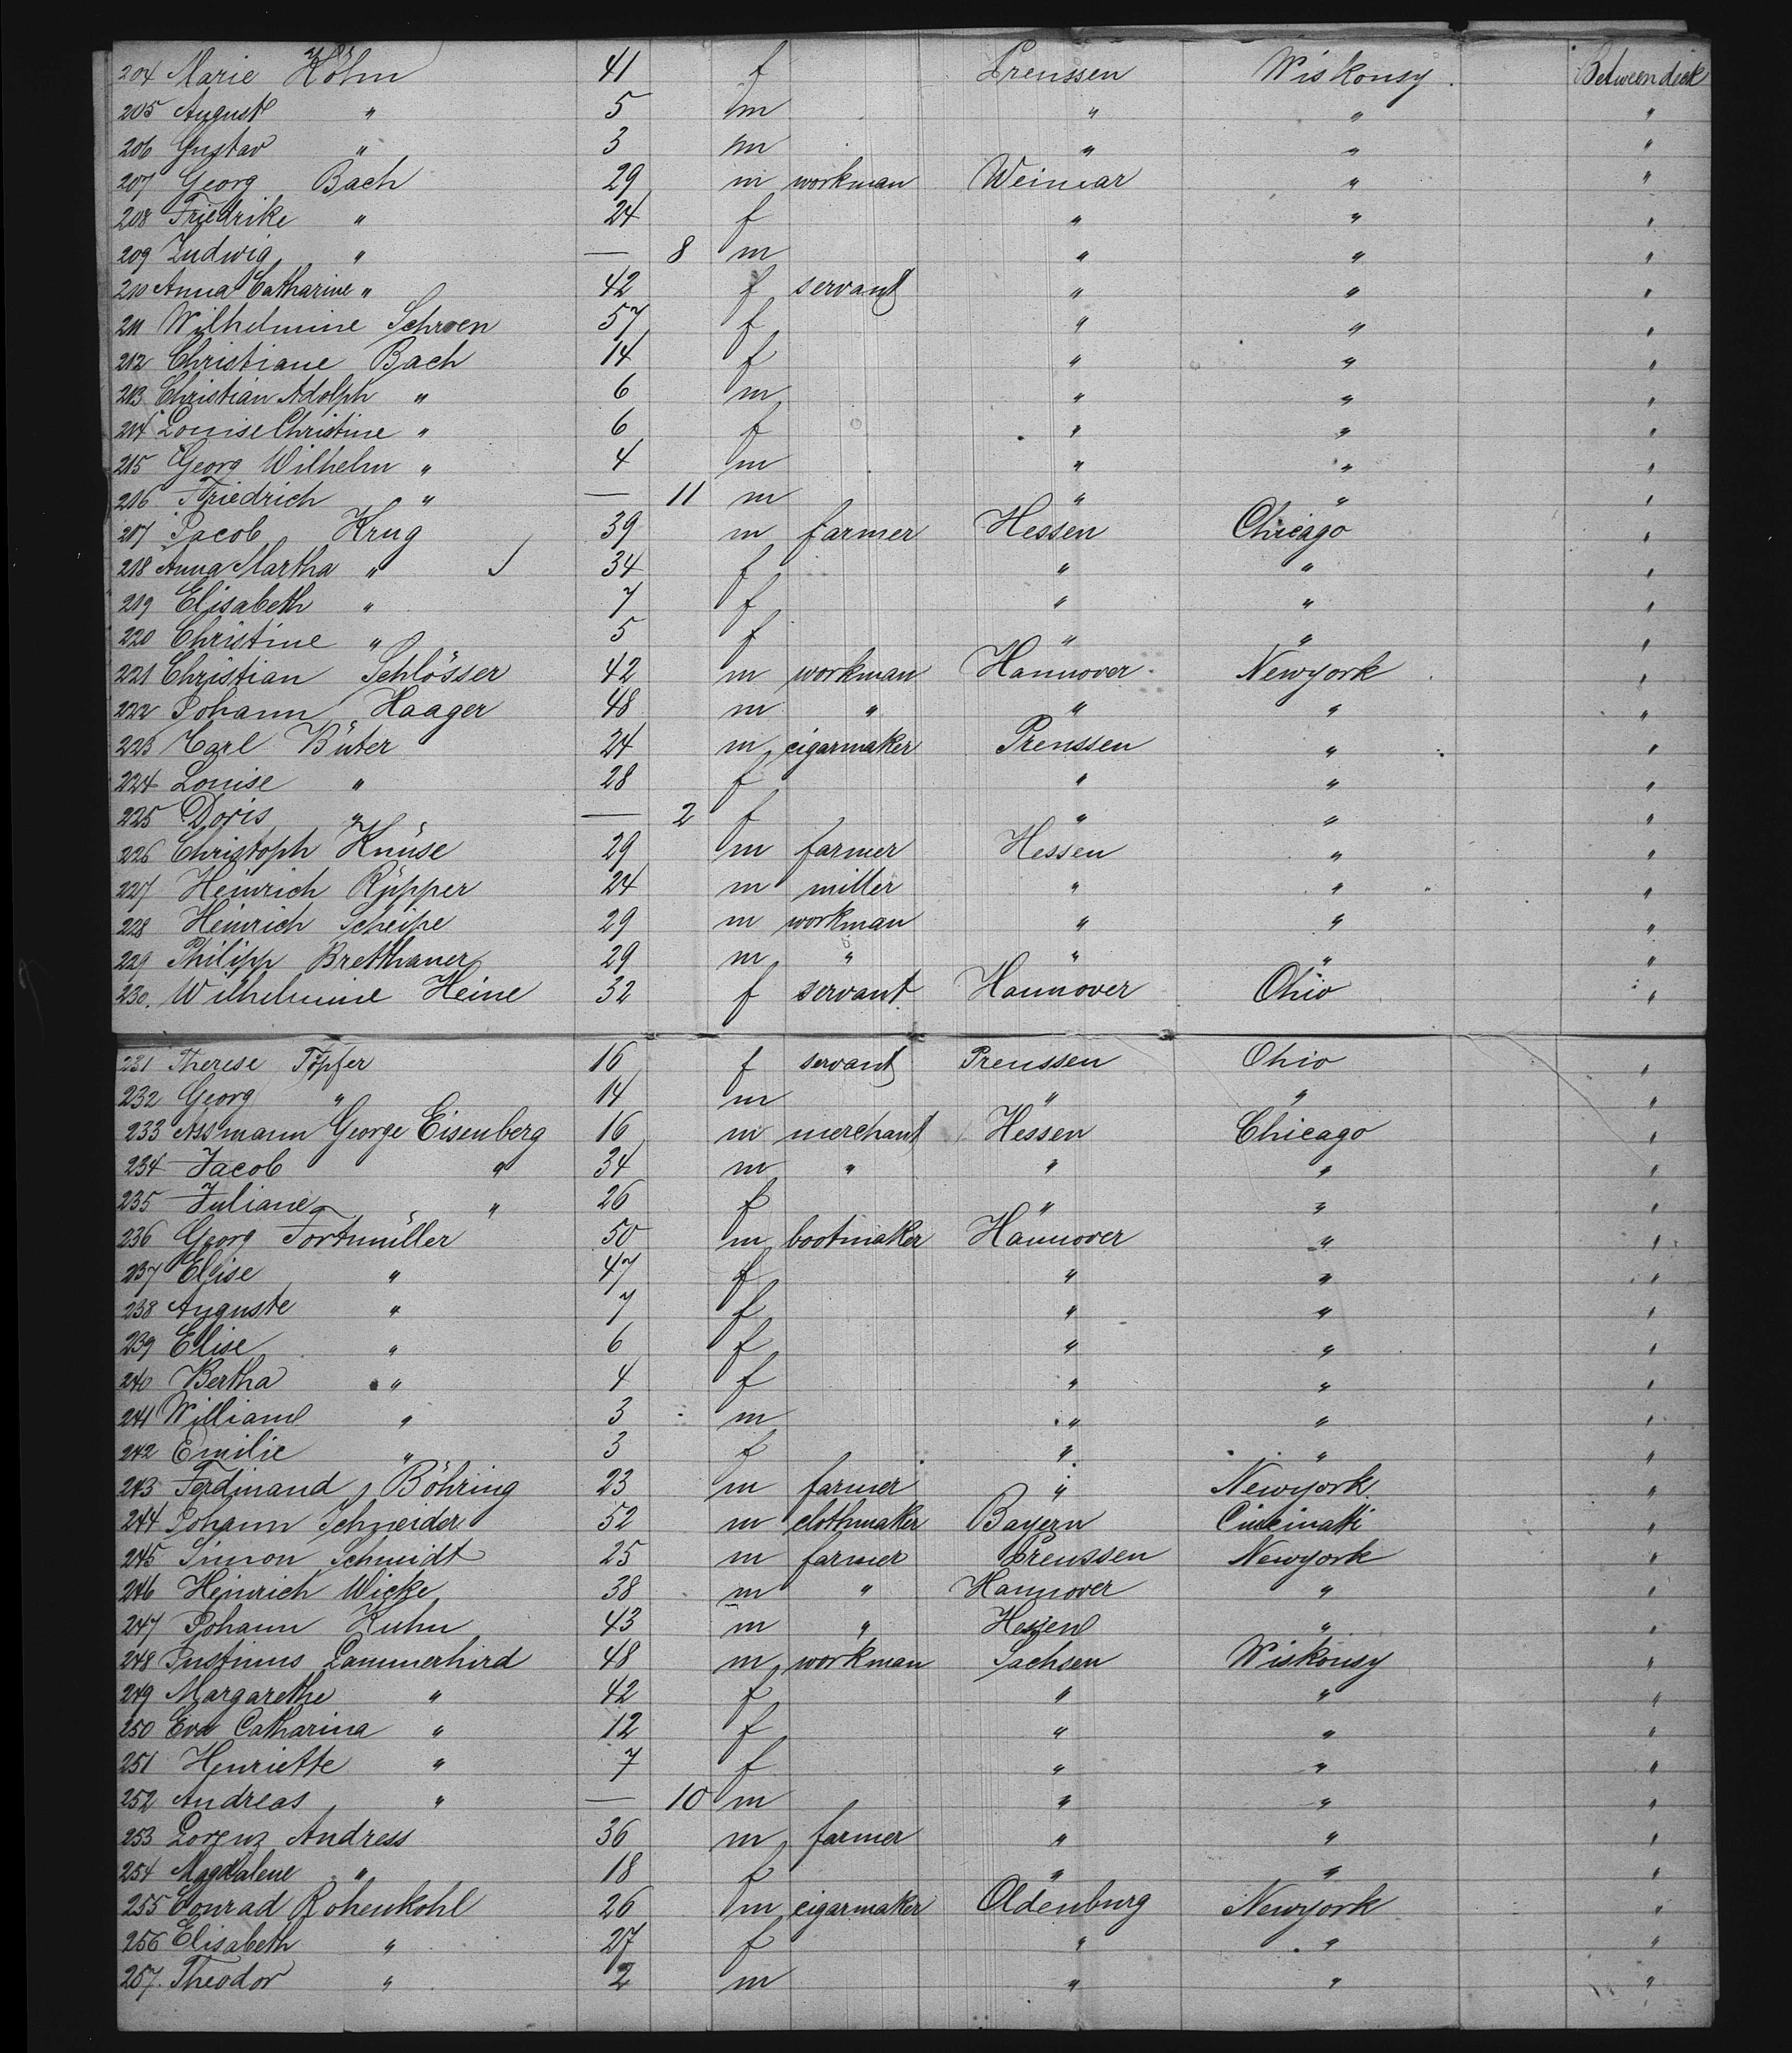 204 Marie Köhn 41 f Preussen Wiskonsy Between deck
205 August " 5 m " " "
206 Gustav " 3 m " " "
207 Georg Bach 29 m workman Weimar " "
208 Friedrike " 24 f " " "
209 Ludwig " — 8 m " " "
210 Anna Catharine " 42 f servant " " "
211 Wilhelmine Schroen 57 f " " "
212 Christiane Bach 14 f " " "
213 Christian Adolph " 6 m " " "
214 Louise Christine " 6 f " " "
215 Georg Wilhelm " 4 m " " "
216 Friedrich " — 11 m " " "
217 Jacob Krug 39 m farmer Hessen Chicago "
218 Anna Martha " 34 f " " "
219 Elisabeth " 7 f " " "
220 Christine " 5 f " " "
221 Christian Schlösser 42 m workman Hannover Newyork "
222 Johann Haager 48 m " " " "
223 Carl Büter 24 m cigarmaker Preussen " "
224 Louise " 28 f " " "
225 Doris " — 2 f " " "
226 Christoph Knüse 29 m farmer Hessen " "
227 Heinrich Rüpper 24 m miller " " "
228 Heinrich Scheipe 29 m workman " " "
229 Philipp Bretthauer 29 m " " " "
230. Wilhelmine Heine 32 f servant Hannover Ohio "
231 Therese Töpfer 16 f servant Preussen Ohio "
232 Georg " 14 m " " "
233 Assmann George Eisenberg 16 m merchant Hessen Chicago "
234 Jacob " 34 m " " " "
235 Juliane " 26 f " " "
236 Georg Fortmüller 50 m bootmaker Hannover " "
237 Elise " 47 f " " "
238 Auguste " 7 f " " "
239 Elise " 6 f " " "
240 Bertha " 4 f " " "
241 William " 3 m " " "
242 Emilie " 3 f " " "
243 Ferdinand Böhring 23 m farmer " Newyork "
244 Johann Schneider 52 m clothmaker Bayern Cincinatti "
245 Simon Schmidt 25 m farmer Preussen Newyork "
246 Heinrich Wicke 38 m " Hannover " "
247 Johann Kuhn 43 m " Hessen " "
248 Justinus Lammerhird 48 m workman Sachsen Wiskonsy "
249 Margarethe " 42 f " " "
250 Eva Catharina " 12 f " " "
251 Henriette " 7 f " " "
252 Andreas " — 10 m " " "
253 Lorenz Andress 36 m farmer " " "
254 Magdalene " 18 f " " "
255 Conrad Rohenkohl 26 m cigarmaker Oldenburg Newyork "
256 Elisabeth " 27 f " " "
257. Theodor " 2 m " " "